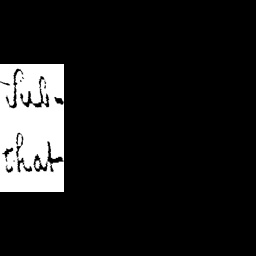 Sub-
that